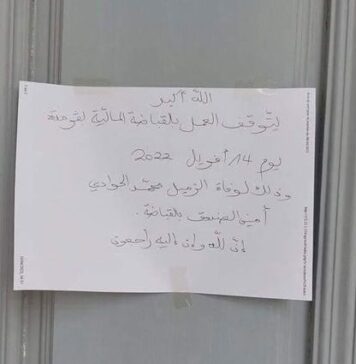 الله أكبر
يتوقف العمل بالقباضة المالية بقرمدة
يوم 14 أفريل 2022
وذلك لوفاة الزميل محمد الجوادي
أمين الصندوق بالقباضة .
إنّا لله وإن إليه راجعون